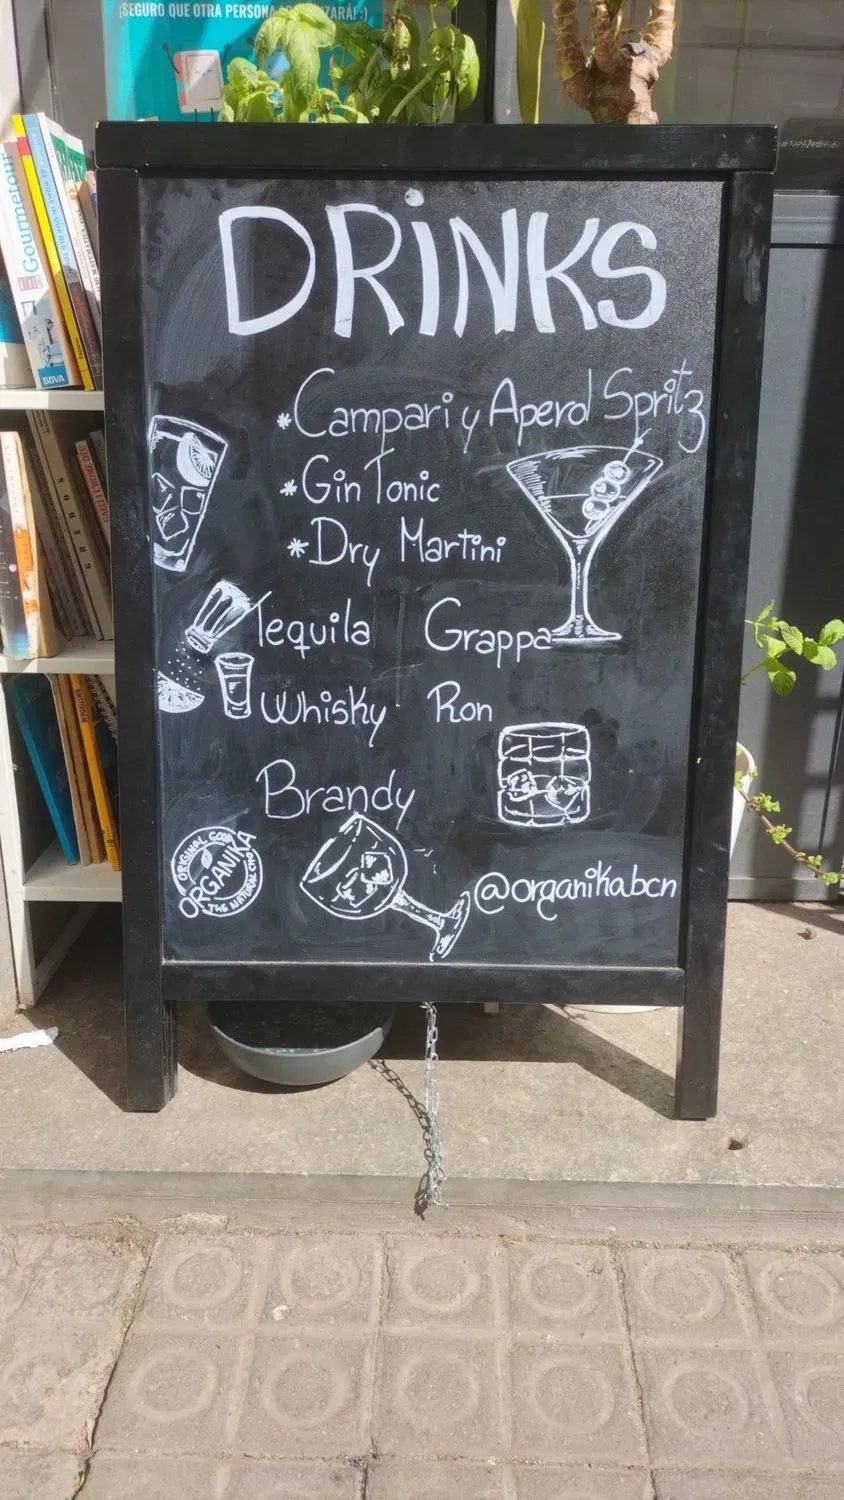 ¡SEGURO QUE OTRA PERSONA
Gourmetour
BBVA
DRiNKS
* Campari y Aperol Spritz
* Gin Tonic
* Dry Martini
Tequila Grappa
Whisky Ron
Brandy
ORIGINAL
ORGANIKA
THE NATURAL
@organikabcn